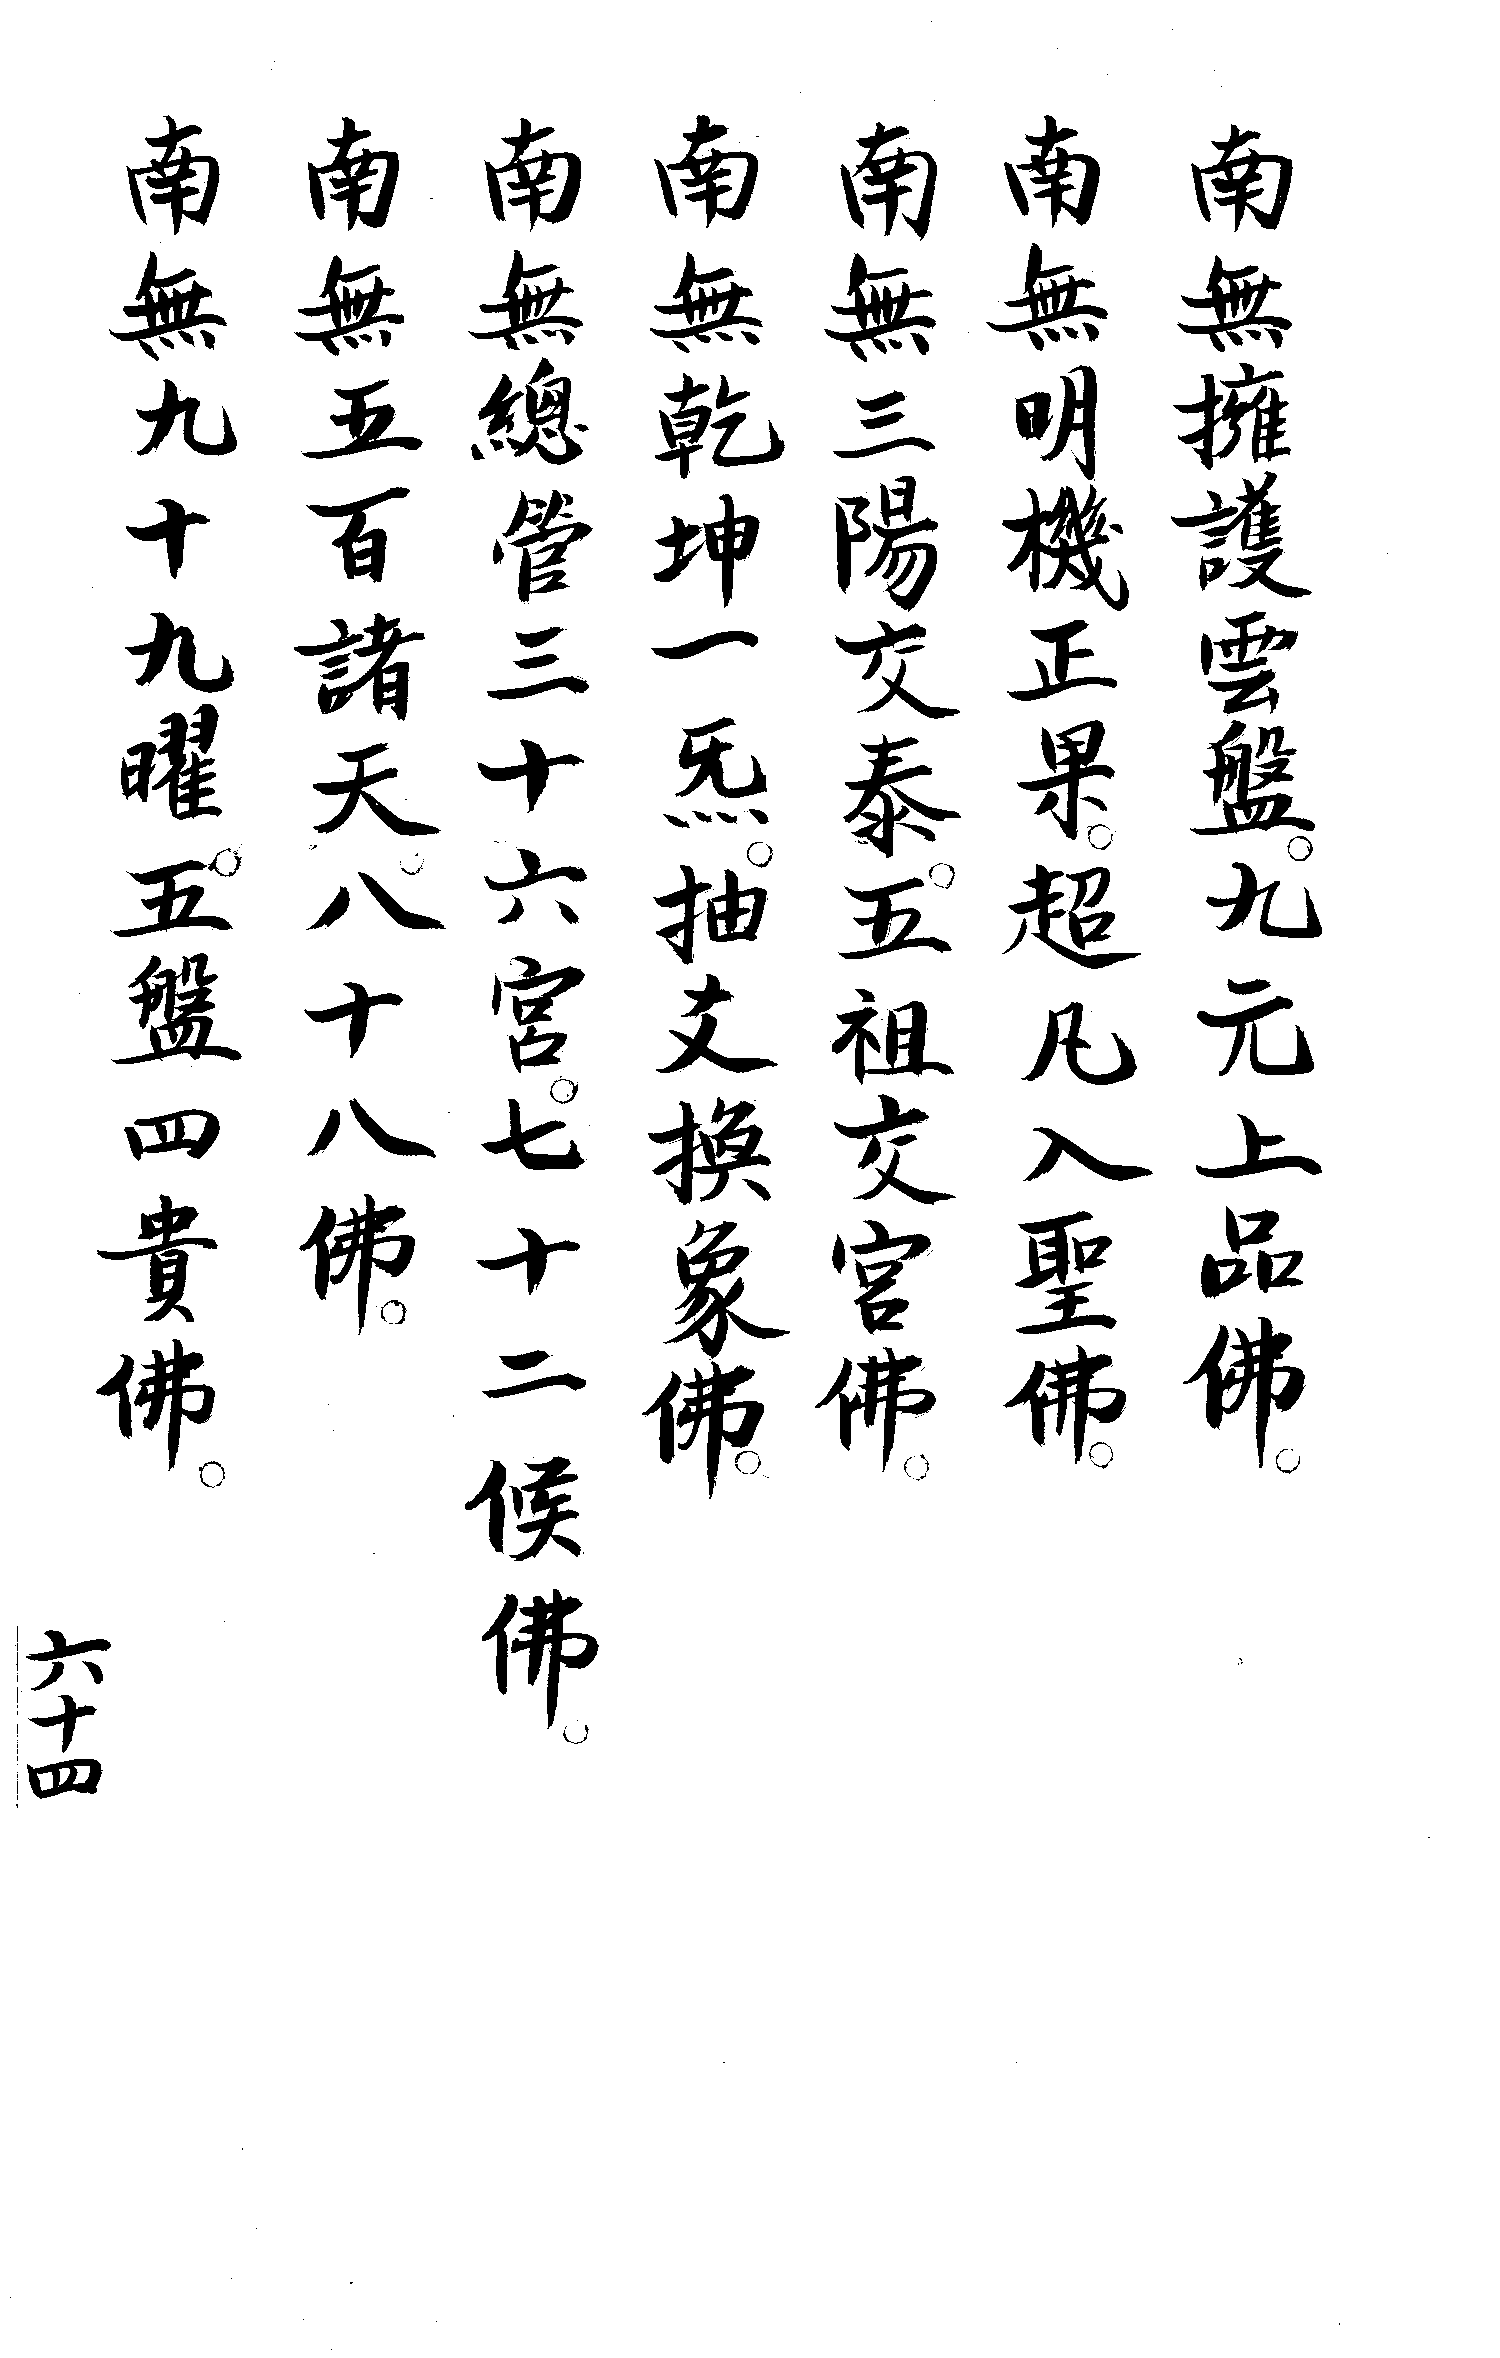 南無擁護雲盤。九元上品佛。
南無明機正果。超凡入聖佛。
南無三陽交泰。五祖交宮佛。
南無乾坤一炁。抽爻換象佛。
南無總管三十六宮。七十二候佛。
南無五百諸天。八十八佛。
南無九十九曜。五盤四貴佛。
六十四